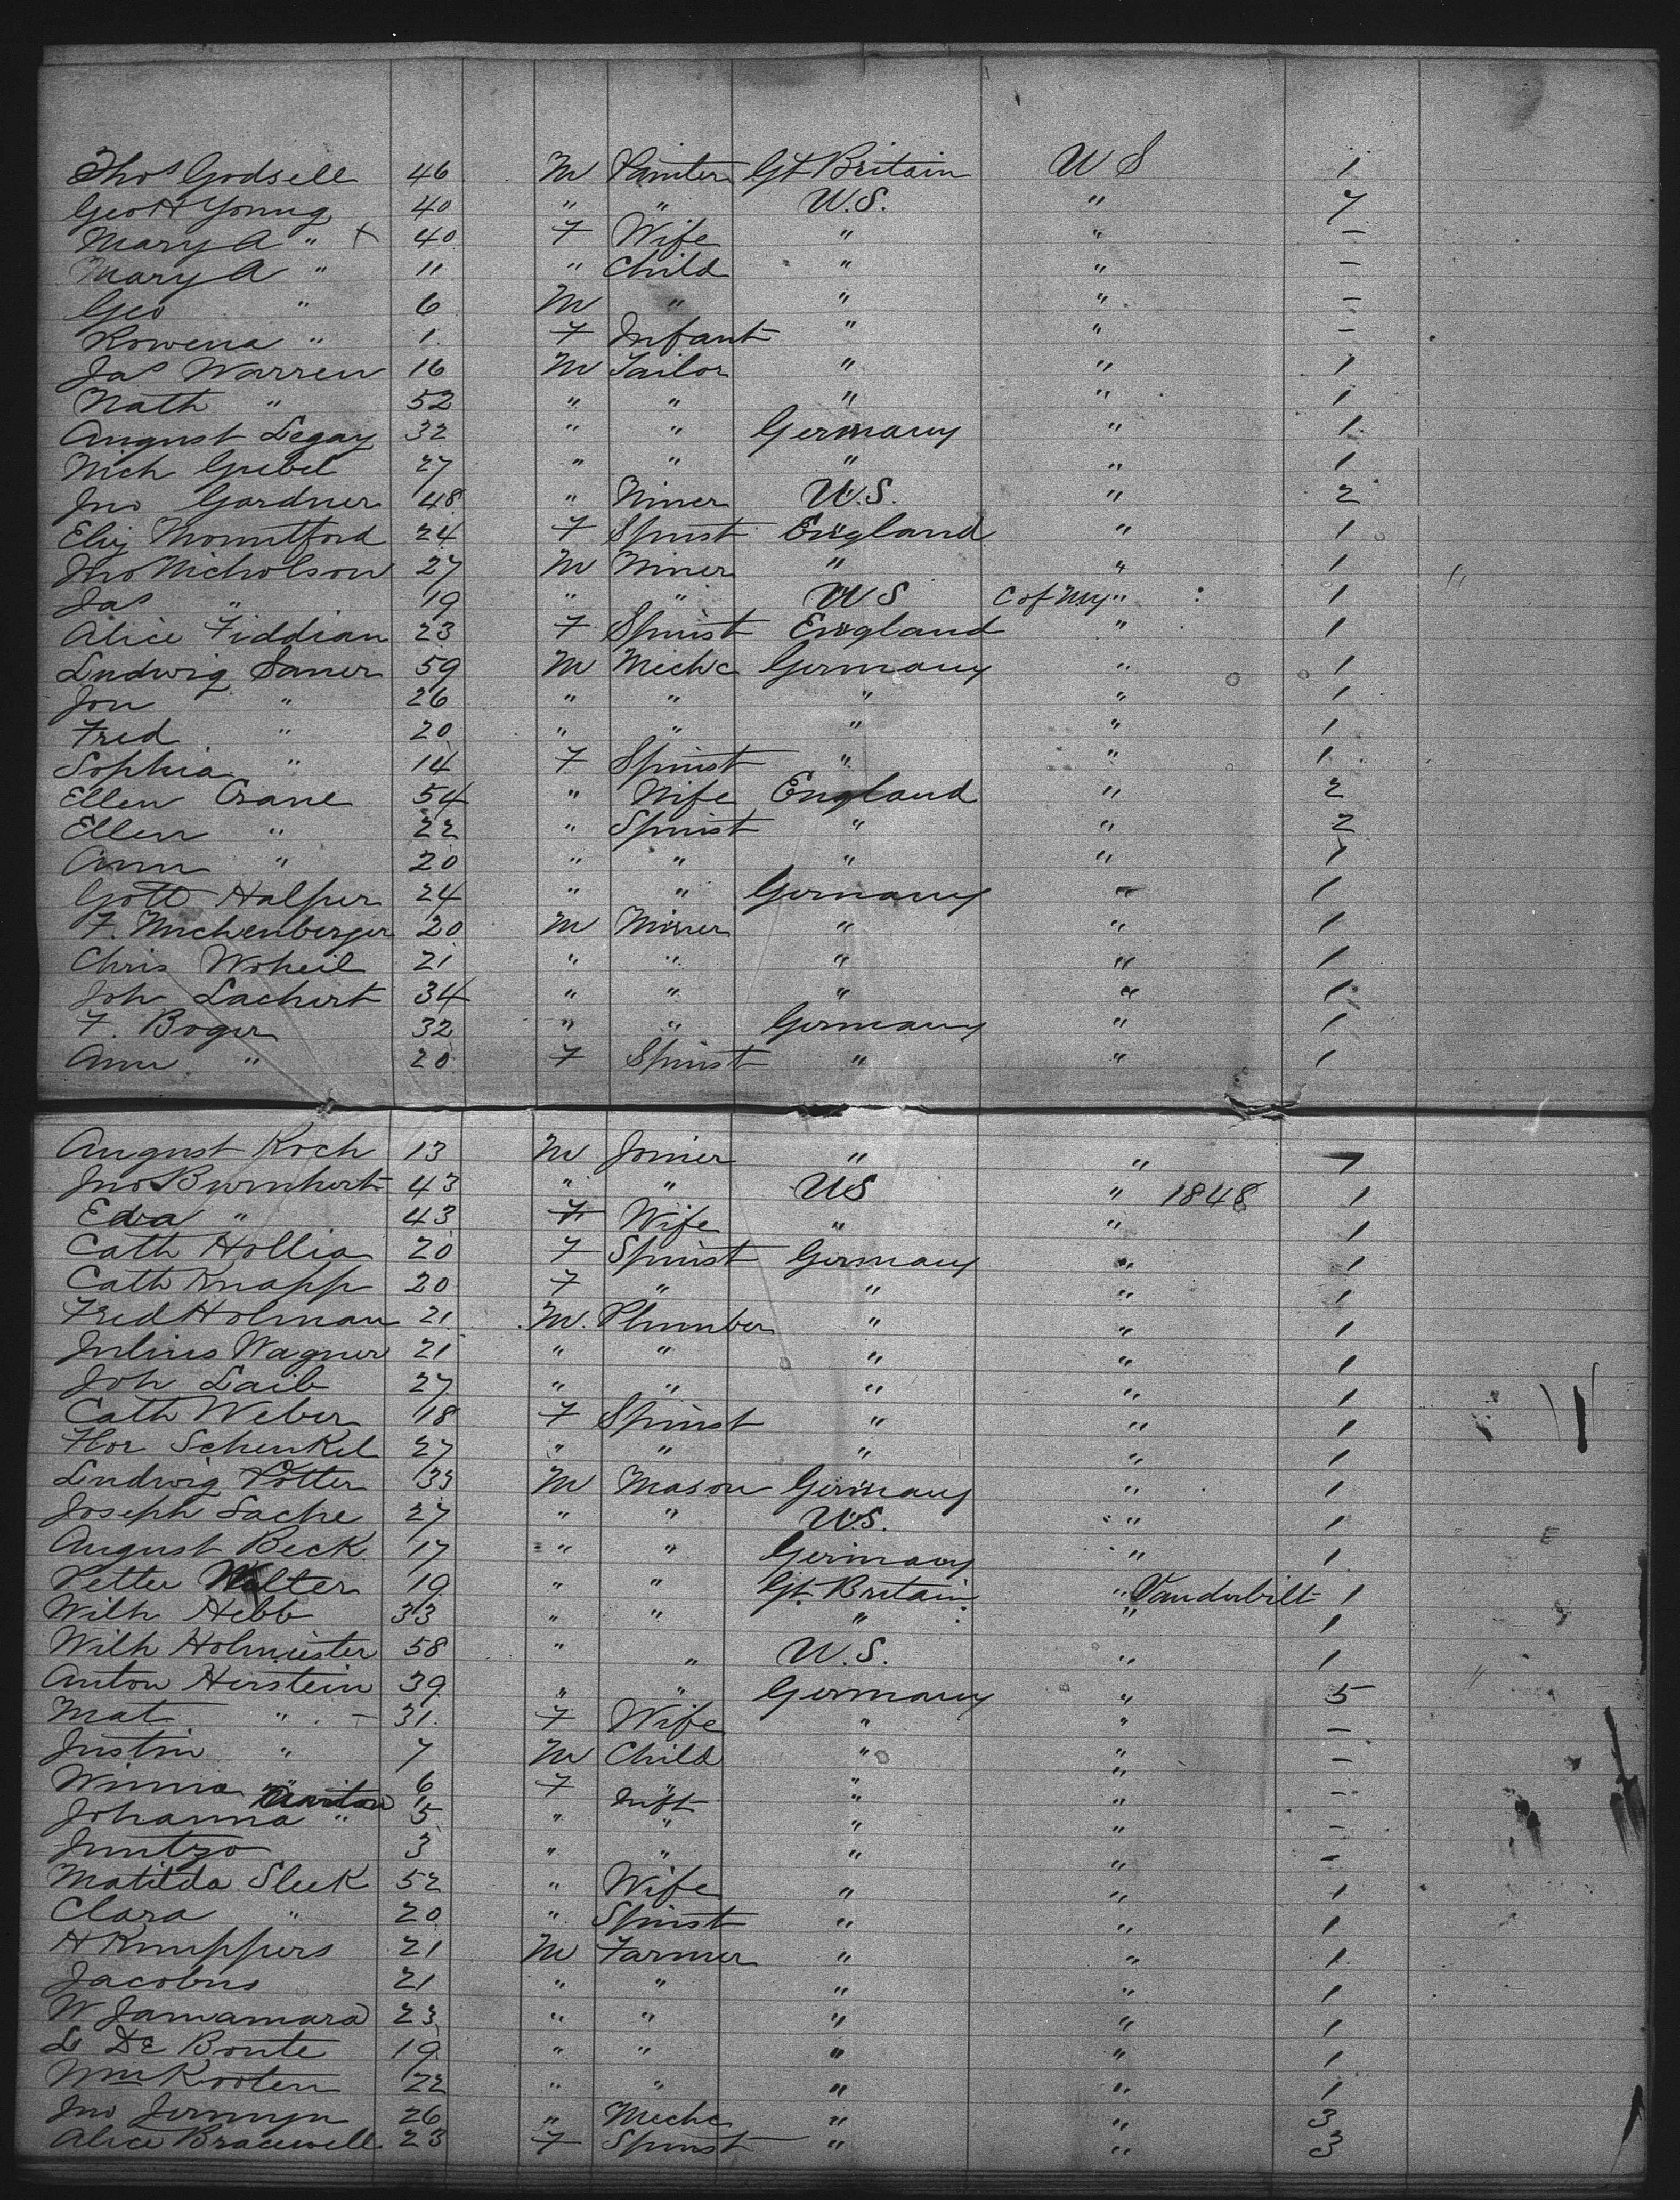 Thos Godsell 46 M Painter Gt Britain U S 1
Geo H Young 40 " " U.S. " 7
Mary A " + 40 F Wife " " -
Mary A " 11 " Child " " -
Geo " 6 M " " " -
Rowena " 1 F Infant " " -
Jas Warren 16 M Tailor " " 1
Nath " 52 " " " " 1
August Legay 32 " " Germany " 1
Nich Grebel 27 " " " " 1
Jno Gardner 48 " Miner U.S. " 2
Eliz Mountford 24 F Spinst England " 1
Jno Nicholson 27 M Miner " " 1
Jas " 19 " " U S C of NY " : 1
Alice Fiddian 23 F Spinst England " 1
Ludwig Saner 59 M Mechc Germany " 1
Jon " 26 " " " " 1
Fred " 20 " " " " 1
Sophia " 14 F Spinst " " 1
Ellen Crane 54 " Wife England " 2
Ellen " 22 " Spinst " " 2
Ann " 20 " " " " 1
Gott Halper 24 " " Germany " 1
F. Muchenberger 20 M Miner " " 1
Chris Woheil 21 " " " " 1
Joh Lachert 34 " " " " 1
F. Boger 32 " " Germany " 1
Ann " 20 F Spinst " " 1
August Koch 13 M Joiner " " 1
Jno Burnhert 43 " " US " 1848 1
Eva " 43 F Wife " " 1
Cath Hollia 20 F Spinst Germany " 1
Cath Knapp 20 F " " " 1
Fred Holman 21 M. Plumber " " 1
Julius Wagner 21 " " " " 1
Joh Laib 27 " " " " 1
Cath Weber 18 F Spinst " " 1
Flor Schenkel 27 " " " " 1
Ludwig Potter 33 M Mason Germany " 1
Joseph Sache 27 " " U.S. " 1
August Beck 17 " " Germany " 1
Petter Wolter 19 " " Gt. Britain " Vanderbilt 1
Wilh Hebb 33 " " " " 1
Wilh Holmeister 58 " " U.S. " 1
Anton Herstein 39 " " Germany " 5
Mat " - 31 F Wife " " -
Justin " 7 M Child " " -
Winna " 6 F " " " -
Johanna " 5 " Inft " " " -
Juntzo 3 " " " " -
Matilda Sleek 52 " Wife " " 1
Clara " 20 " Spinst " " 1
H Knuppers 21 M Farmer " " 1
Jacobus 21 " " " " 1
W Janamara 23 " " " " 1
L De Bonte 19 " " " " 1
Wm Kooten 22 " " " " 1
Jno Jermyn 26 " Mechc " " 3
Alice Bracewell 23 F Spinst " " 3